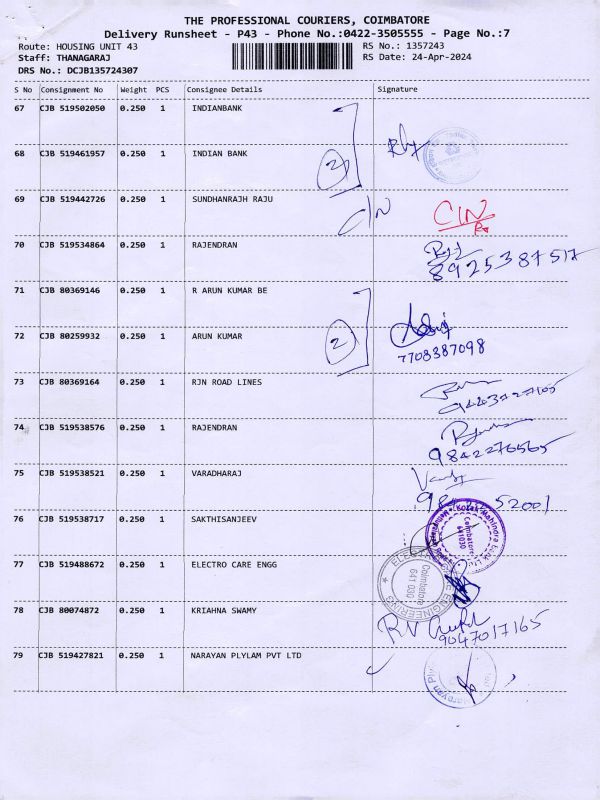 THE PROFESSIONAL COURIERS, COIMBATORE
Delivery Runsheet - P43 - Phone No.:0422-3505555 - Page No.:7
Route: HOUSING UNIT 43
RS No.: 1357243
Staff: THANAGARAJ
RS Date: 24-Apr-2024
DRS No.: DCJB135724307
S No Consignment No Weight PCS Consignee Details Signature
67 CJB 519502050 0.250 1 INDIANBANK
68 CJB 519461957 0.250 1 INDIAN BANK
2
69 CJB 519442726 0.250 1 SUNDHANRAJH RAJU
C/N C/N
70 CJB 519534864 0.250 1 RAJENDRAN
8925387517
71 CJB 80369146 0.250 1 R ARUN KUMAR BE
72 CJB 80259932 0.250 1 ARUN KUMAR
2
7708387098
73 CJB 80369164 0.250 1 RJN ROAD LINES
74 CJB 519538576 0.250 1 RAJENDRAN
9842276565
75 CJB 519538521 0.250 1 VARADHARAJ
52001
76 CJB 519538717 0.250 1 SAKTHISANJEEV
Kotak Mahindra Bank
Coimbatore
641030
77 CJB 519488672 0.250 1 ELECTRO CARE ENGG
ENGINEERING
Coimbatore
641 030
78 CJB 80074872 0.250 1 KRIAHNA SWAMY
9047017165
79 CJB 519427821 0.250 1 NARAYAN PLYLAM PVT LTD